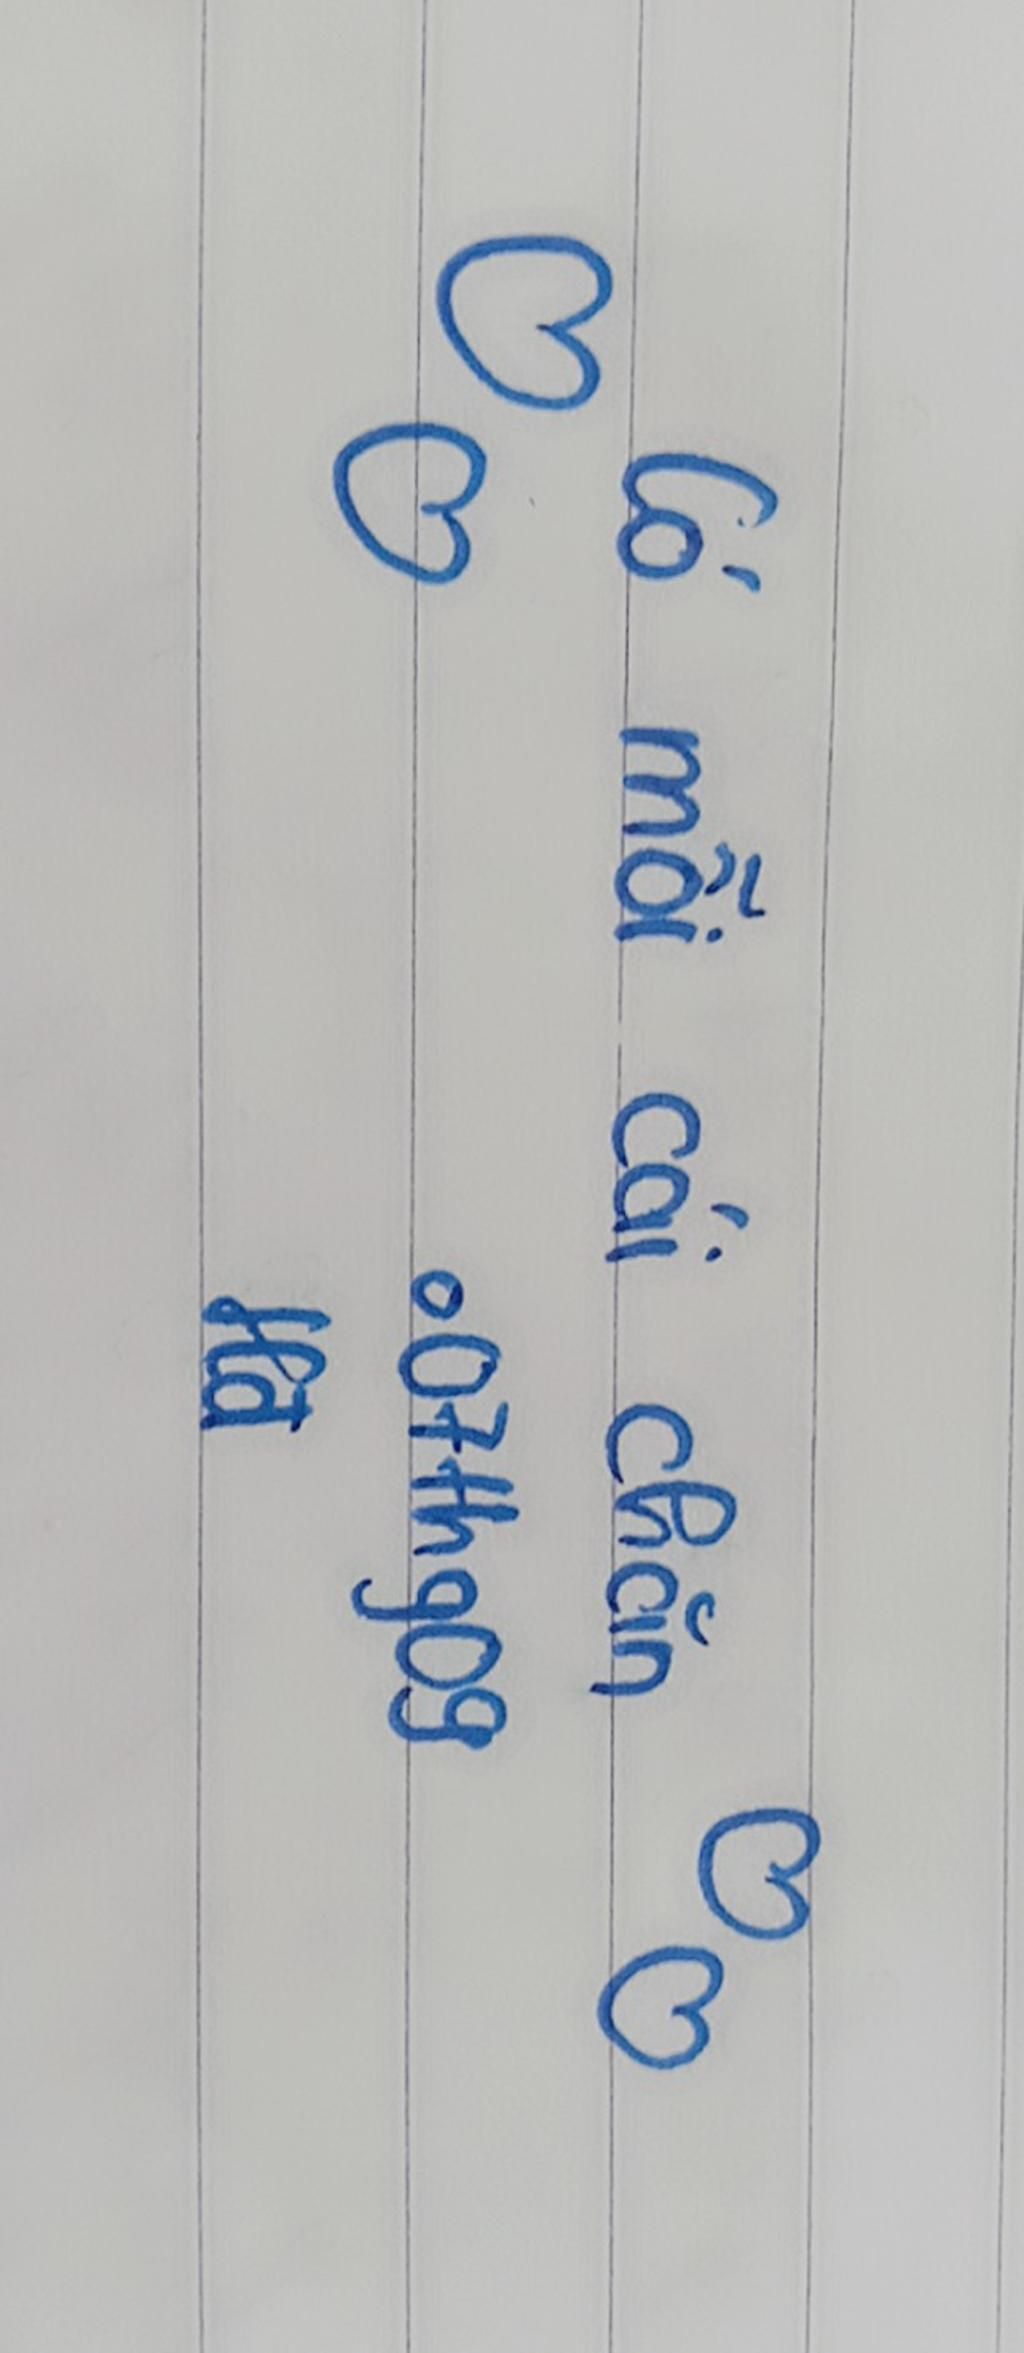 Có mỗi cái chăn
.07thg09